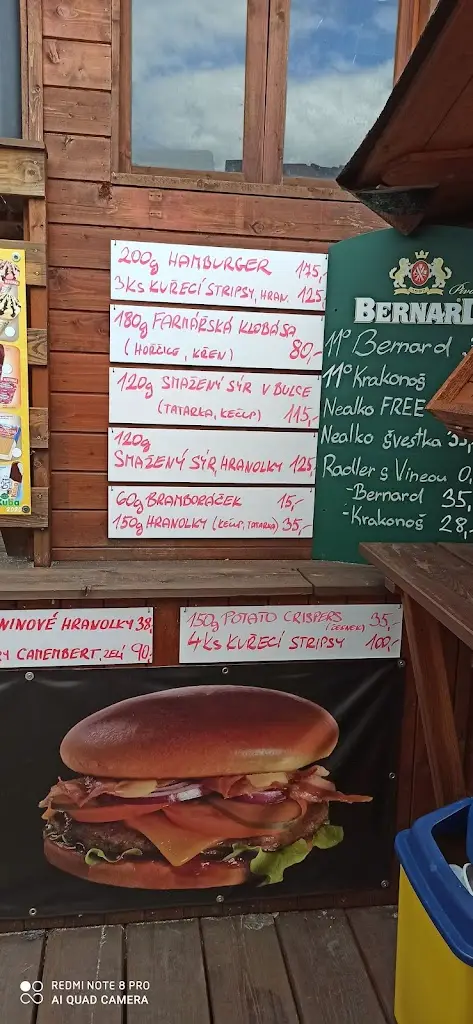 200g HAMBURGER 175,-
3KS KUŘECÍ STRIPSY, HRAN. 125,-
180g FARMÁŘSKÁ KLOBÁSA
(HOŘČICE, KŘEN) 80,-
120g SMAŽENÝ SÝR V BULCE
(TATARKA, KEČUP) 115,-
120g
SMAŽENÝ SÝR, HRANOLKY 125,-
60g BRAMBORÁČEK 15,-
150g HRANOLKY (KEČUP, TATARKA) 35,-
BERNARD
11° Bernard
11° Krakonoš
Nealko FREE
Nealko švestka
Radler s Vineou 0,
-Bernard 35,
-Krakonoš 28,-
NINOVÉ HRANOLKY 38,
CAMEMBERT, ZELÍ 90,
150g POTATO CRISPERS 35,-
4KS KUŘECÍ STRIPSY 100,-
REDMI NOTE 8 PRO
AI QUAD CAMERA